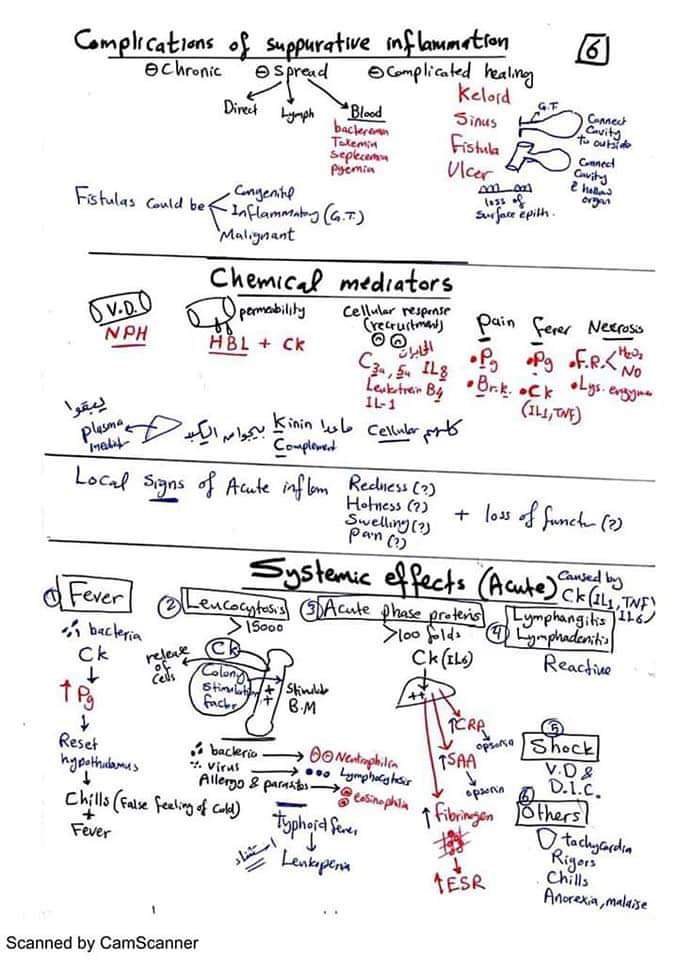 Complications of suppurative inflammation
6
⊖ Chronic ⊖ Spread ⊖ Complicated healing
Direct Lymph Blood
bacteremia
Toxemia
Septecemia
Pyemia
Keloid
Sinus
Fistula
Ulcer
G.T
Connect
Cavity
to outside
Connect
Cavity
& hollow
organ
loss of
surface epith.
Fistulas could be
Congenital
Inflammatory (G.T.)
Malignant
Chemical mediators
V.D.
NPH
permeability
HBL + CK
Cellular response
(recruitment)
C3a, 5a IL8
Leukotrein B4
IL-1
Pain
• Pg
• Br.k.
Fever
• Pg
• CK
(IL1, TNF)
Necrosis
• F.R. < H2O2
NO
• Lys. enzyme
كلهم Cellular ماعدا Kinin
Complement
يبقوا
plasma
Local Signs of Acute inflam
Redness (?)
Hotness (?)
Swelling (?)
Pain (?)
+ loss of funct (?)
Systemic effects (Acute)
Caused by
CK (IL1, TNF
IL6)
① Fever
bacteria
CK
↑ Pg
Reset
hypothalamus
Chills (False feeling of cold)
+
Fever
② Leucocytosis
> 15000
CK
release
of
cells
Colony
Stimulation
factor
++
B.M
bacteria → Neutrophilia
virus → Lymphocytosis
Allergy & parasites → eosinophilia
Typhoid fever
استثناء
Leukopenia
③ Acute phase proteins
>100 folds
CK (IL6)
++
↑ CRP
opsonin
↑ SAA
opsonin
↑ Fibrinogen
↑ ESR
④ Lymphangitis
Lymphadenitis
Reactive
⑤
Shock
V.D &
D.I.C.
⑥
Others
tachycardia
Rigors
Chills
Anorexia, malaise
Scanned by CamScanner